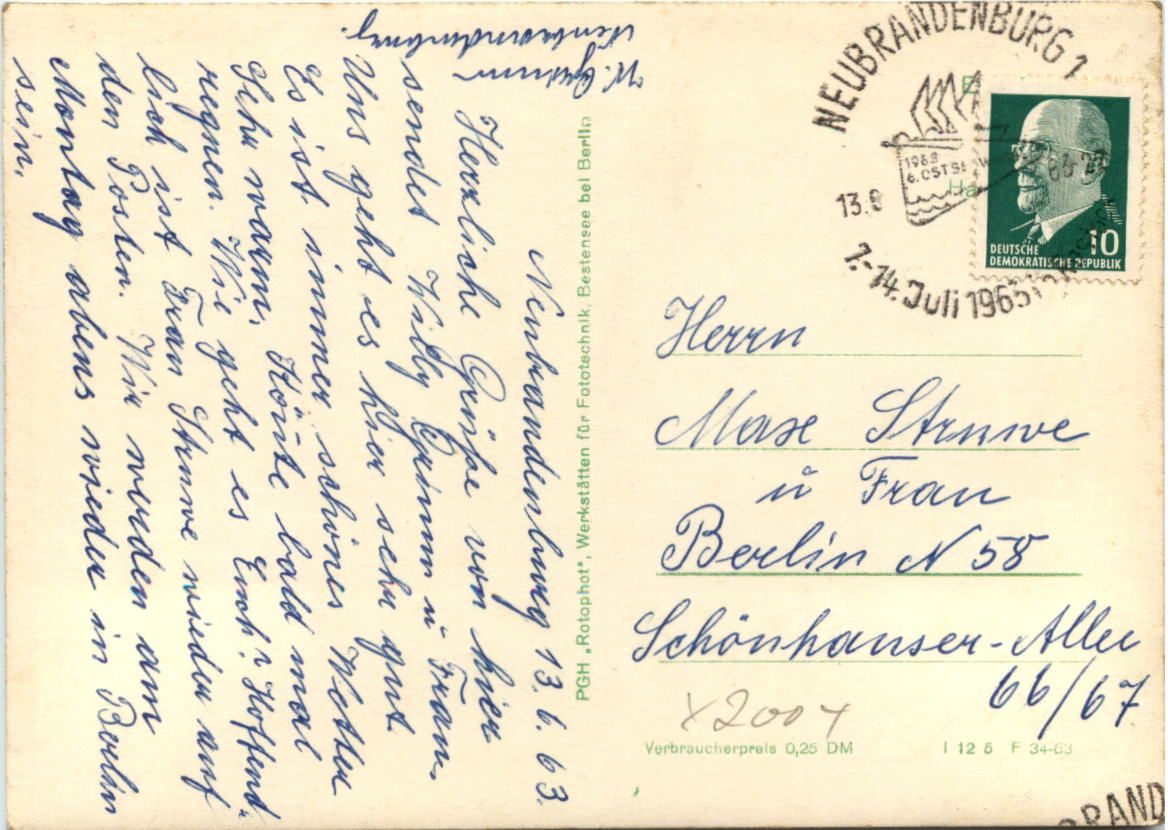 Neubrandenburg 13.6.63.
Herzliche Grüße von hier
sendet Willy Grimm u Frau.
Uns geht es hier sehr gut.
Es ist immer schönes Wetter
Sehr warm. Könte bald mal
regnen. Wie geht es Euch? Hoffent-
lich ist Frau Struwe wieder auf
den Posten. Wir werden am
Montag abens wieder in Berlin
sein.
W. Grimm
Neubrandenburg.
PGH „Rotophot", Werkstätten für Fototechnik, Bestensee bei Berlin
NEUBRANDENBURG 1
1963
6. OSTSE
13.6
63-2
7.-14. Juli 1963
DEUTSCHE
DEMOKRATISCHE REPUBLIK
10
Herrn
Max Struwe
u Frau
Berlin N 58
Schönhauser-Allee
66/67
X2004
Verbraucherpreis 0,25 DM
I 12 5 F 34-63
BRAND